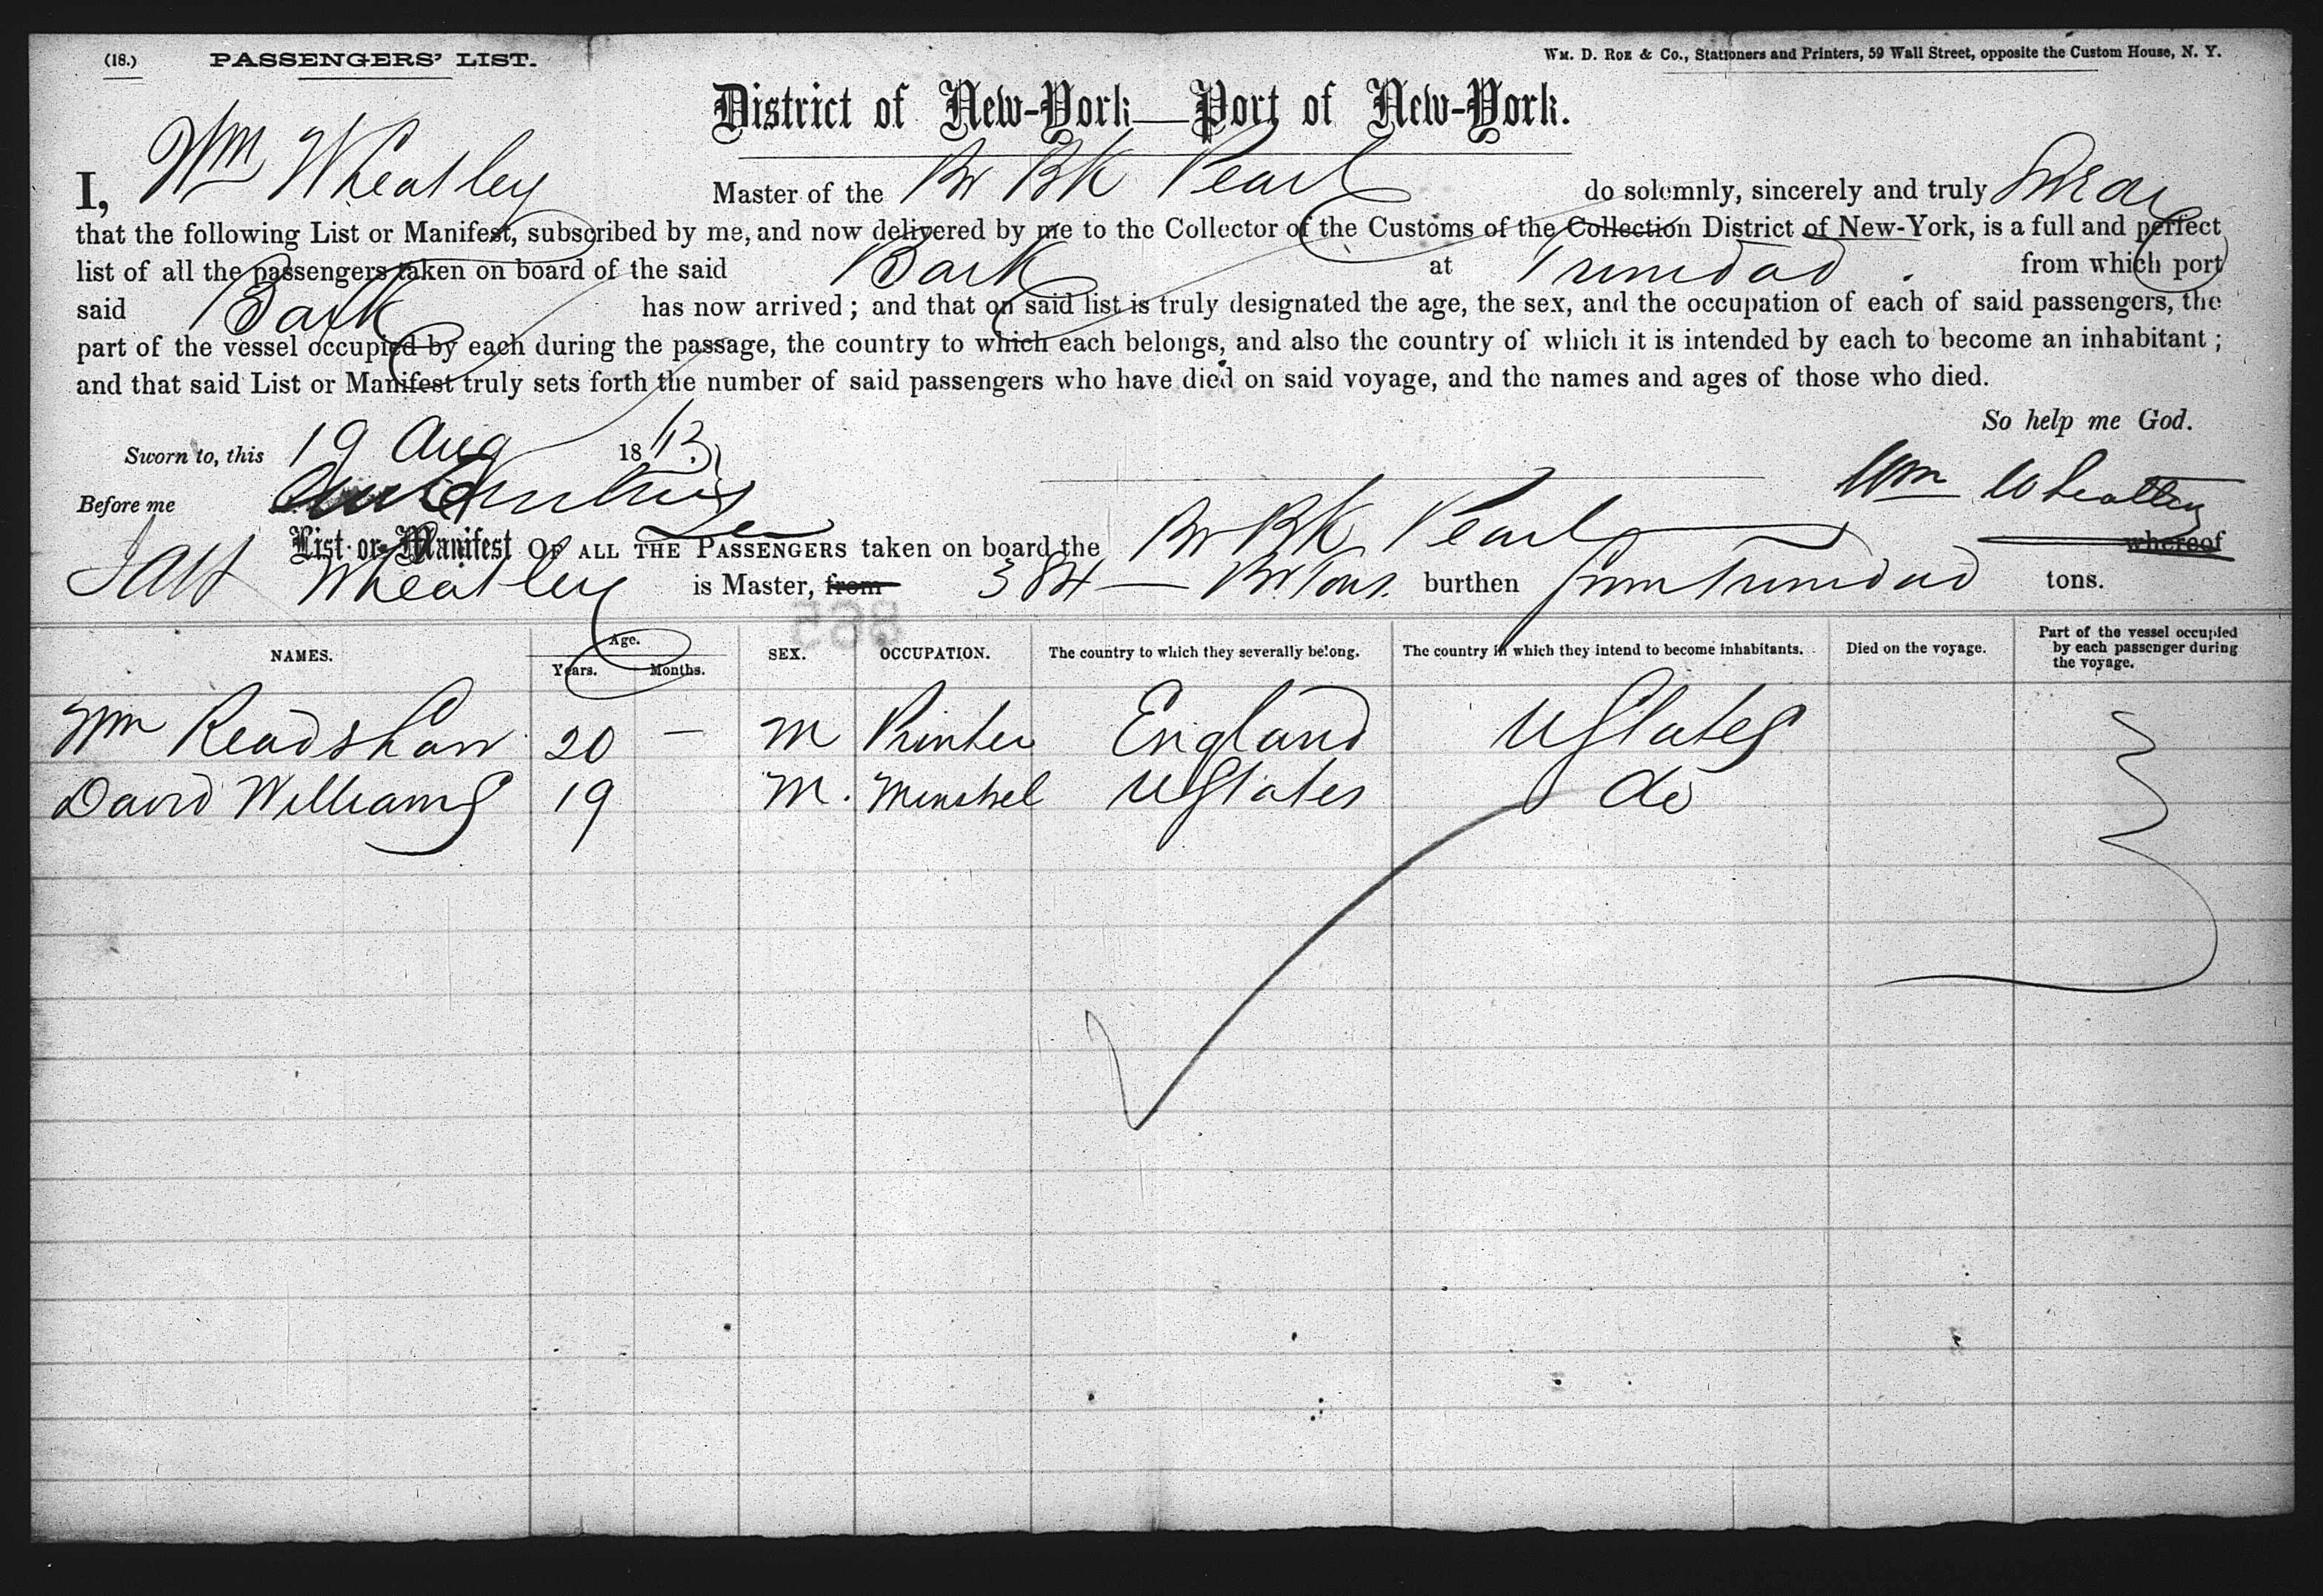 (18.) PASSENGERS' LIST. Wm. D. Roe & Co., Stationers and Printers, 59 Wall Street, opposite the Custom House, N. Y.
District of New-York—Port of New-York.
I, Wm Wheatley Master of the Br Bk Pearl do solemnly, sincerely and truly Swear
that the following List or Manifest, subscribed by me, and now delivered by me to the Collector of the Customs of the Collection District of New-York, is a full and perfect
list of all the passengers taken on board of the said Bark at Trinidad from which port
said Bark has now arrived; and that on said list is truly designated the age, the sex, and the occupation of each of said passengers, the
part of the vessel occupied by each during the passage, the country to which each belongs, and also the country of which it is intended by each to become an inhabitant;
and that said List or Manifest truly sets forth the number of said passengers who have died on said voyage, and the names and ages of those who died.
So help me God.
Sworn to, this 19 Aug 18
Before me Wm Wheatley
List or Manifest OF ALL THE PASSENGERS taken on board the Br Bk Pearl whereof
Wheatley is Master, from 384 — Br Tons. burthen from Trinidad tons.
865
NAMES. Age. Years. Months. SEX. OCCUPATION. The country to which they severally belong. The country in which they intend to become inhabitants. Died on the voyage. Part of the vessel occupied by each passenger during the voyage.
Wm Readshaw 20 — M Printer England U States
David Williams 19 M. Minstrel U States do